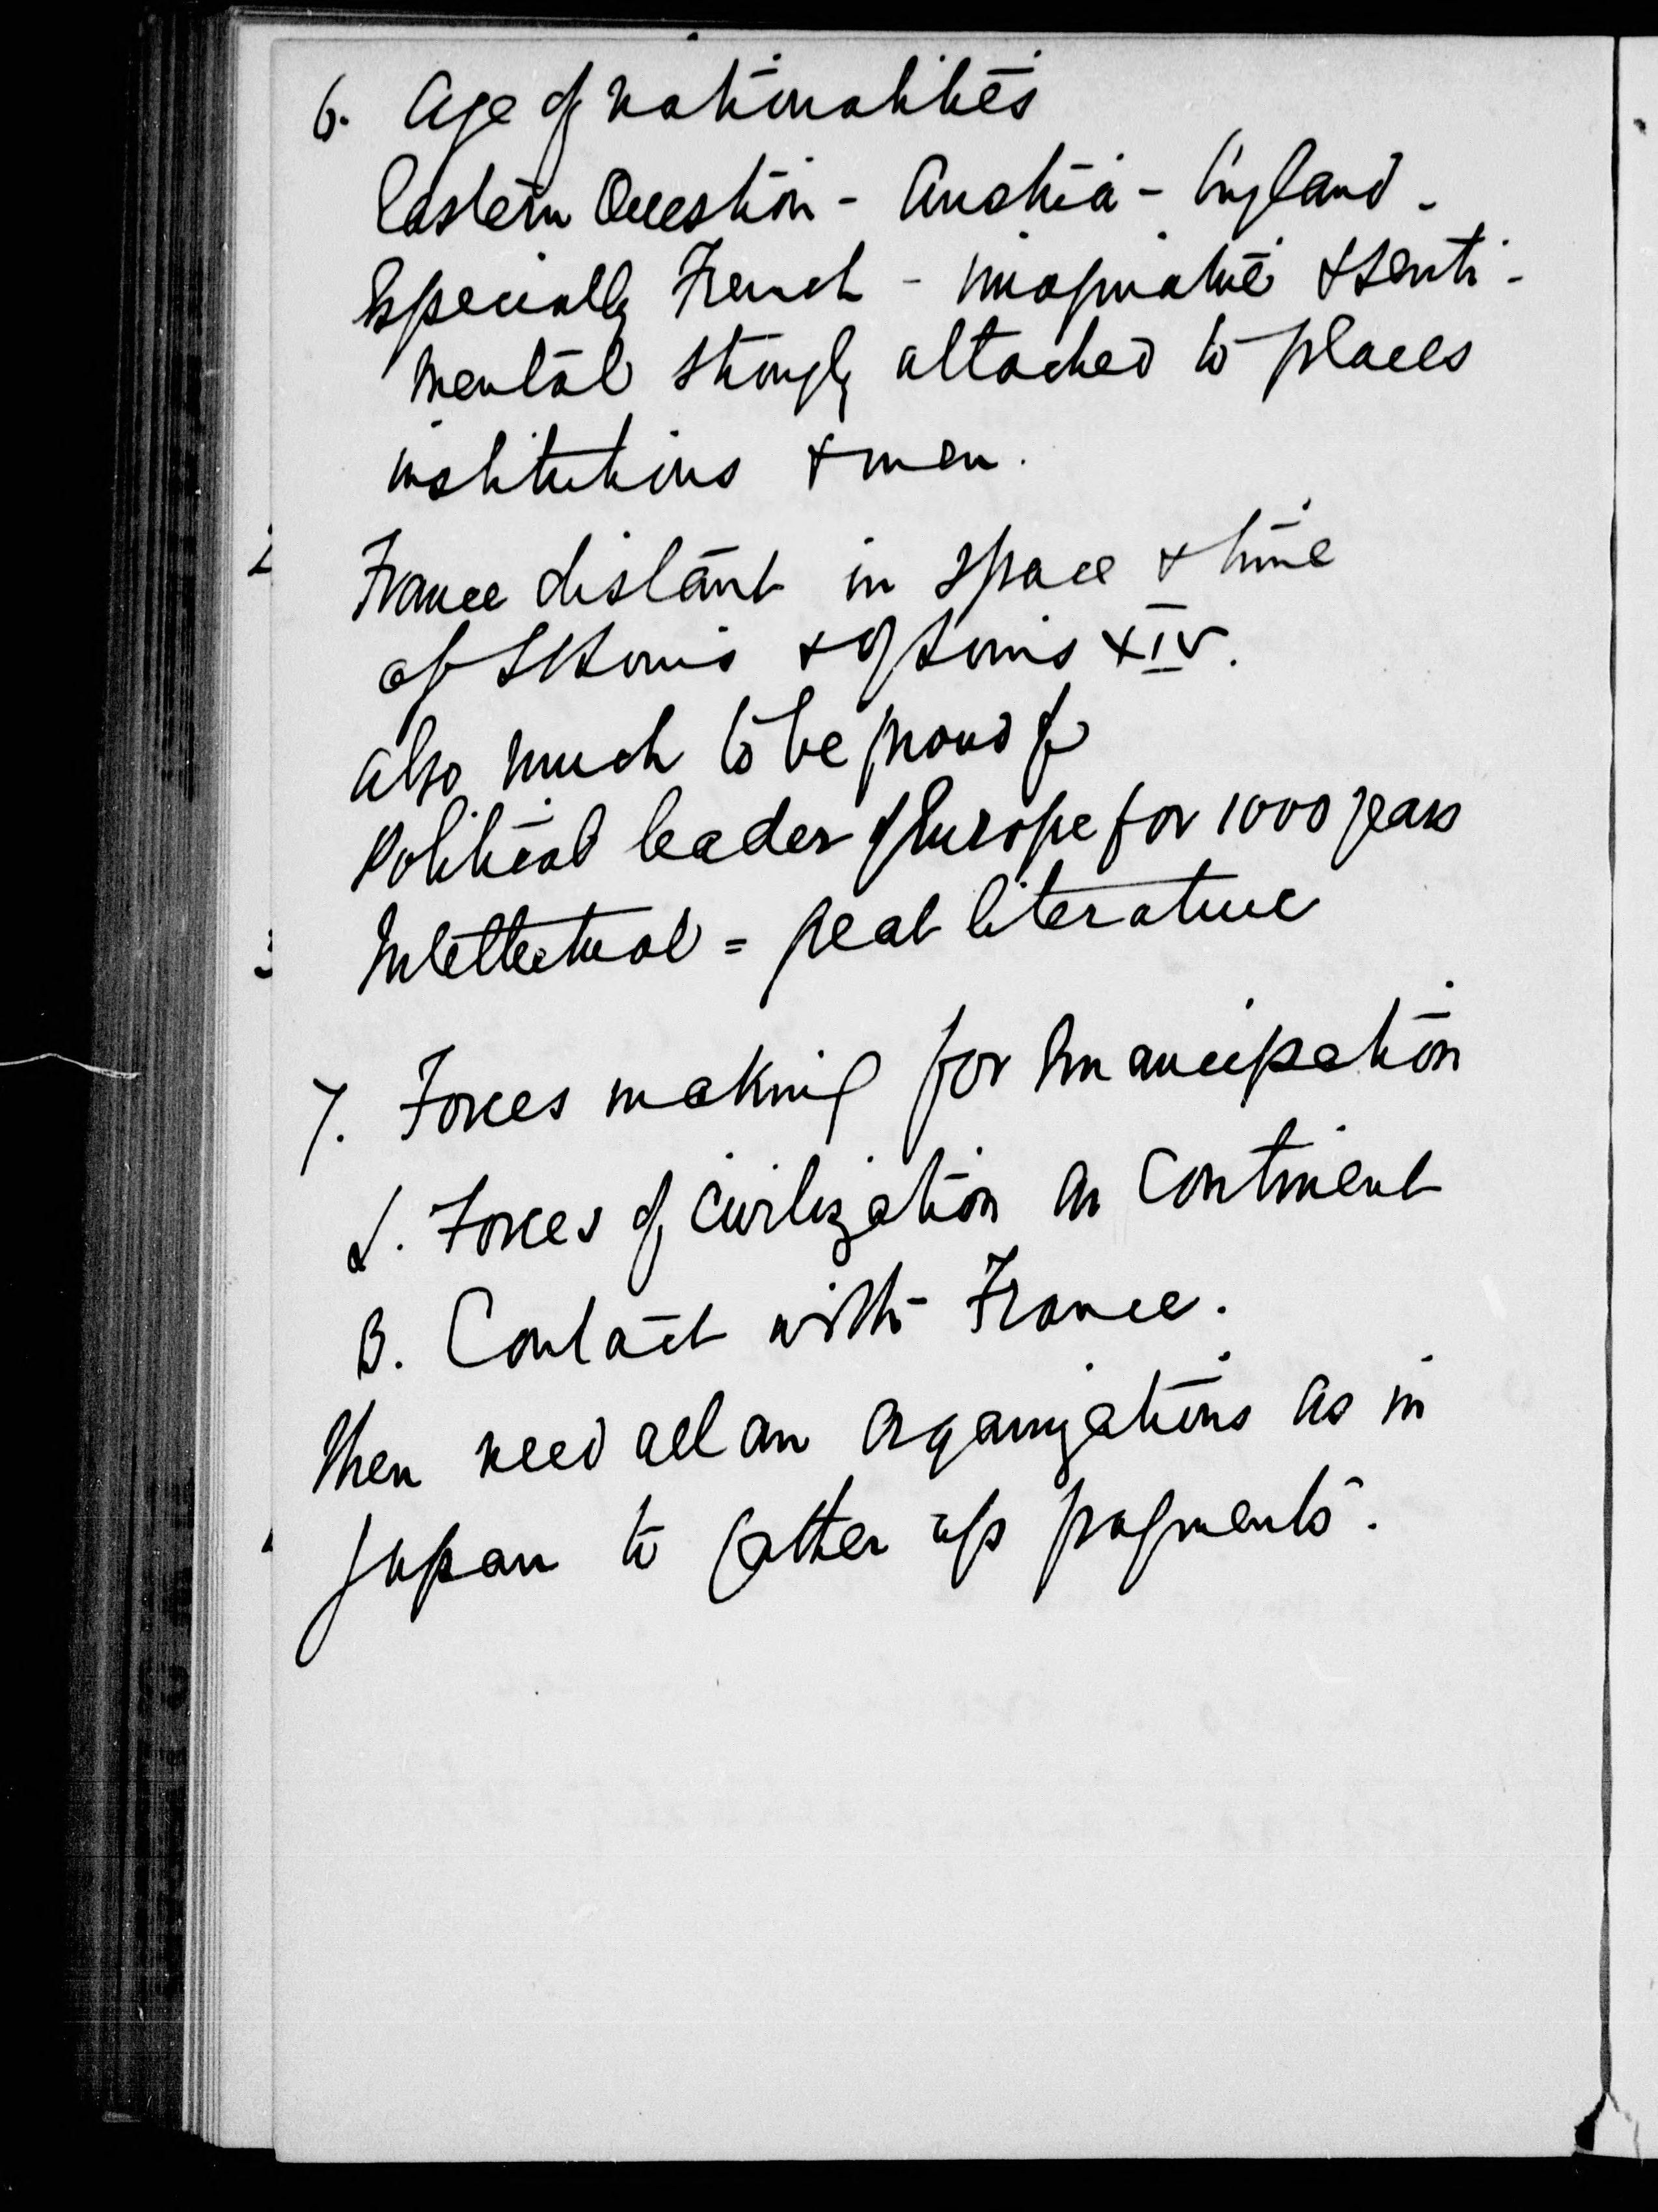 6. Age of nationalities
Eastern Question - Austria - England -
Especially French - imaginative & senti-
mental strongly attached to places
institutions & men.
France distant in space & time
of St Louis & of Louis XIV.
Also much to be proud of
Political leader of Europe for 1000 years
Intellectual = great literature
7. Forces making for Emancipation
α. Forces of civilization on Continent
B. Contact with France.
Then need all an organizations as in
Japan to gather up fragments.